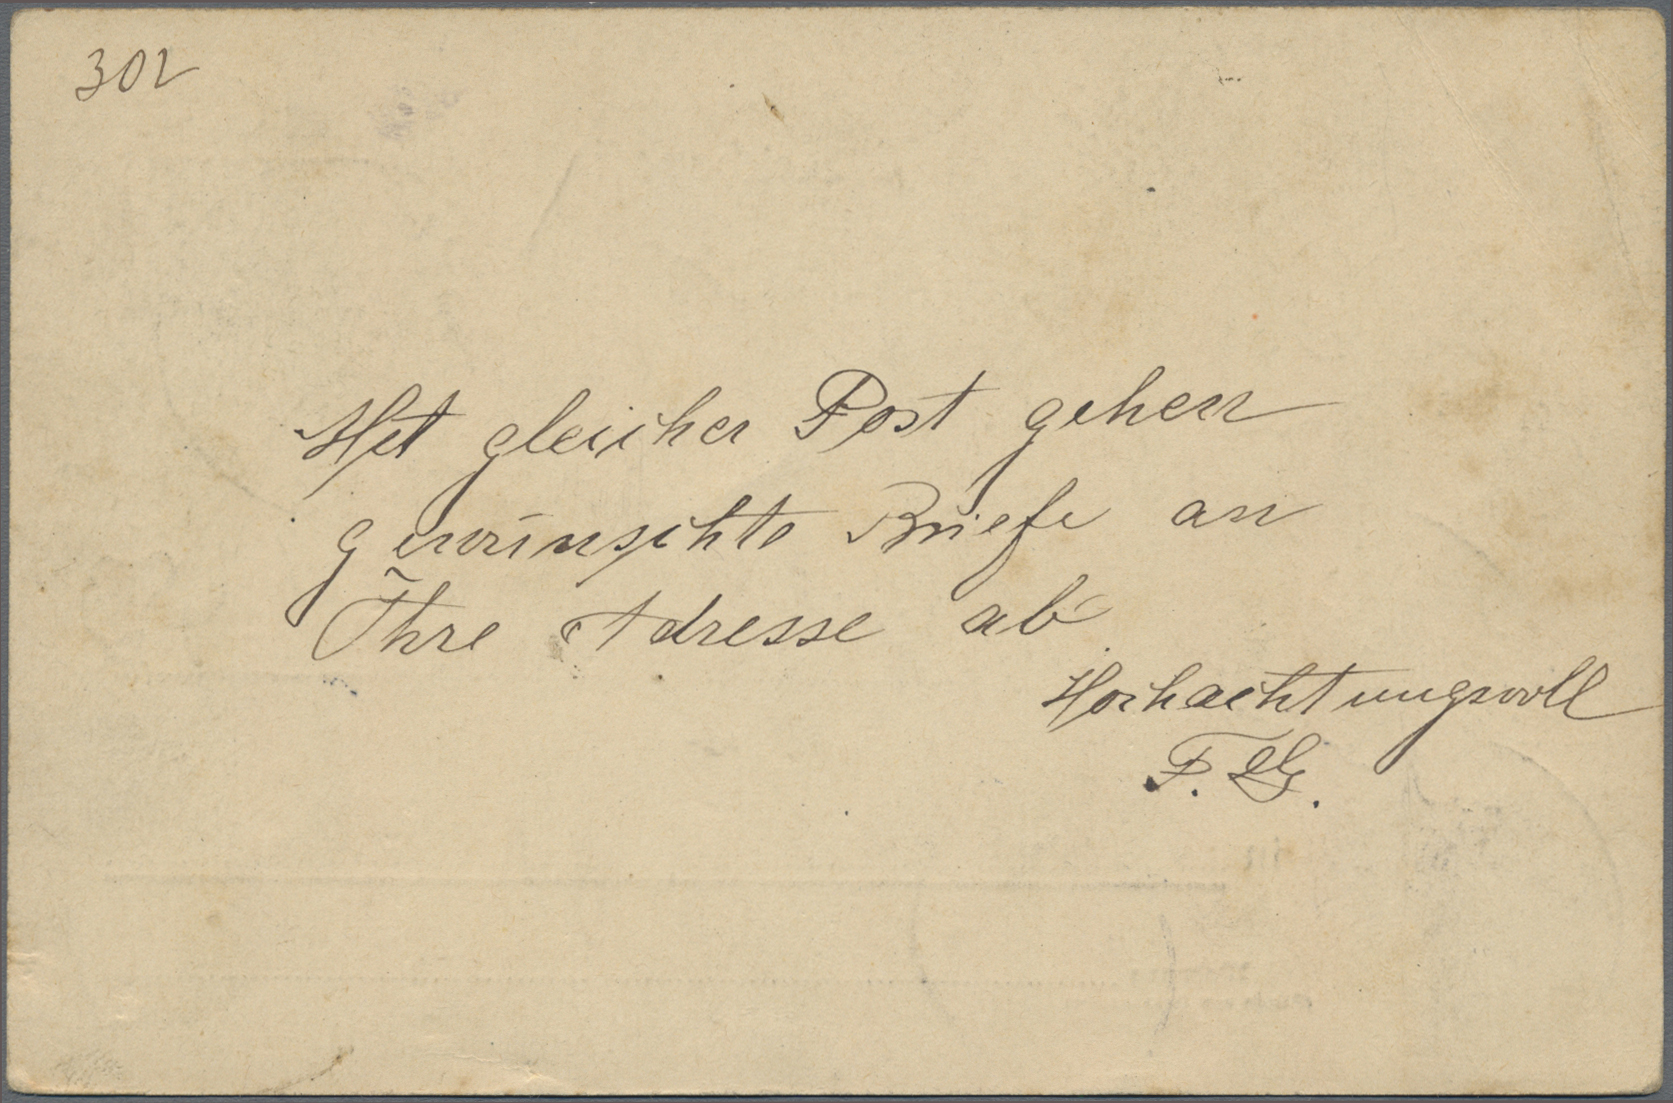 302
Mit gleicher Post gehen
gewünschte Briefe an
Ihre Adresse ab
Hochachtungsvoll
F. G.